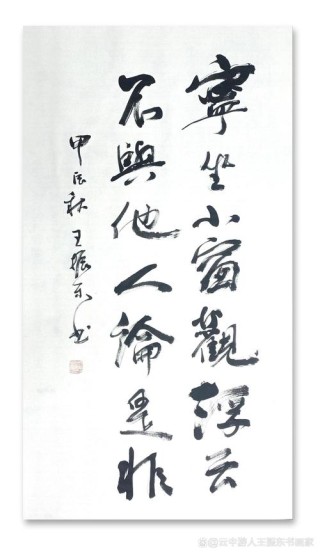 寧坐小窗觀浮云
不與他人論是非
甲辰秋王振东书
@云中游人王振东书画家